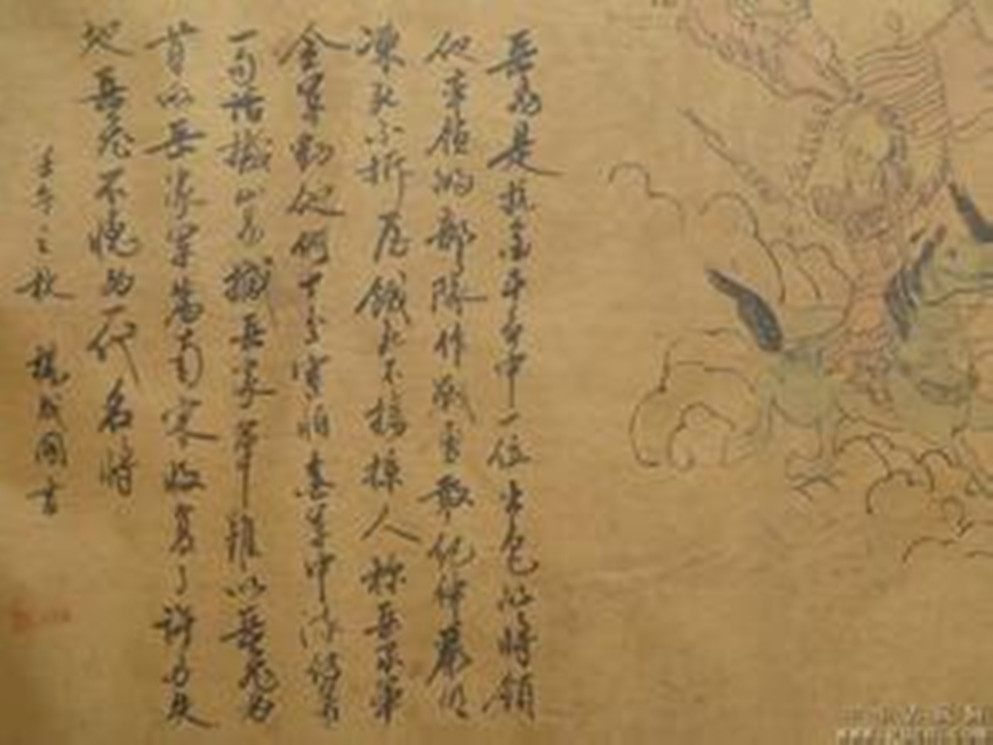 岳飞是抗金斗争中一位出色的将领
他率领的部队作战勇敢纪律严明
冻死不拆屋饿死不掳掠人称岳家军
金军对他们十分害怕在军中流传着
一句话撼山易撼岳家军难以岳飞为
首的岳家军为南宋收复了许多失
地岳飞不愧为一代名将
壬午之秋 成国书